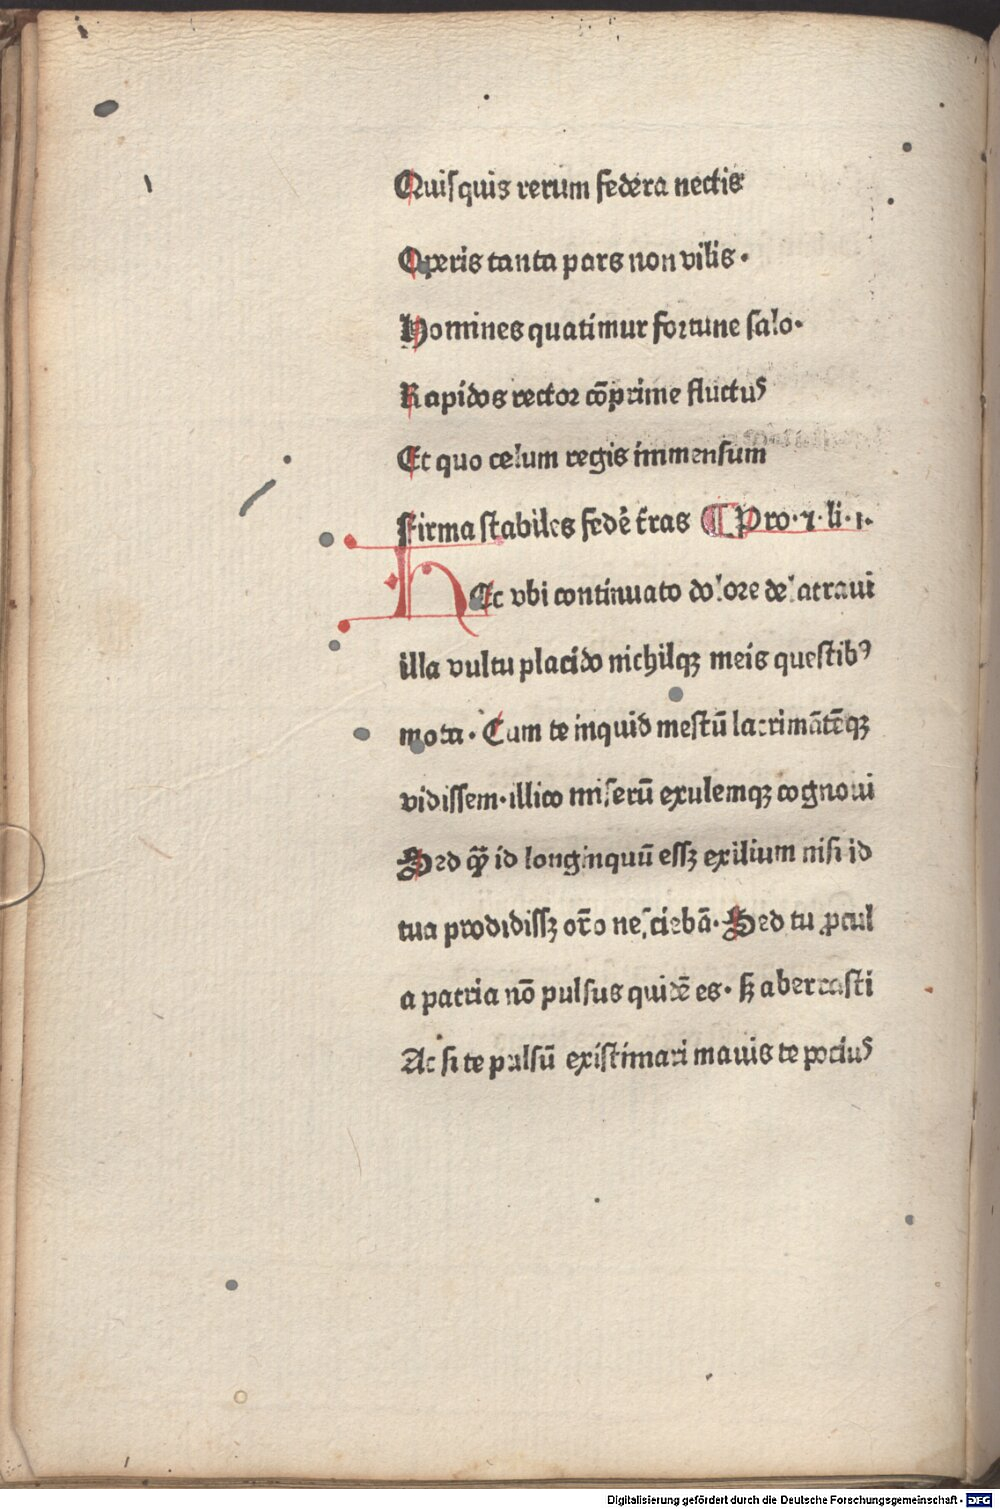 Quiſquis rerum federa nectis
Operis tanta pars non vilis·
Homines quatimur fortune ſalo·
Rapidos rector cōprime fluctuꝰ
Et quo celum regis immenſum
Firma ſtabiles fedeͤ t̄ras ¶ Pro·7·li·1·
HEc vbi continuato dolore delatraui
illa vultu placido nichilqꝫ meis queſtibꝰ
mota· Cum te inquid meſtū lacrimātēqꝫ
vidiſſem·illico miſerū exulemqꝫ cognoui
Sed qͣꝫ id longinquū eſſꝫ exilium niſi id
tua prodidiſſꝫ or̄o neſciebā· Sed tu ꝓcul
a patria nō pulſus quidē es· ſꝫ aberraſti
Ac ſi te pulſū exiſtimari mauis te pociuꝰ
Digitalisierung gefördert durch die Deutsche Forschungsgemeinschaft - DFG